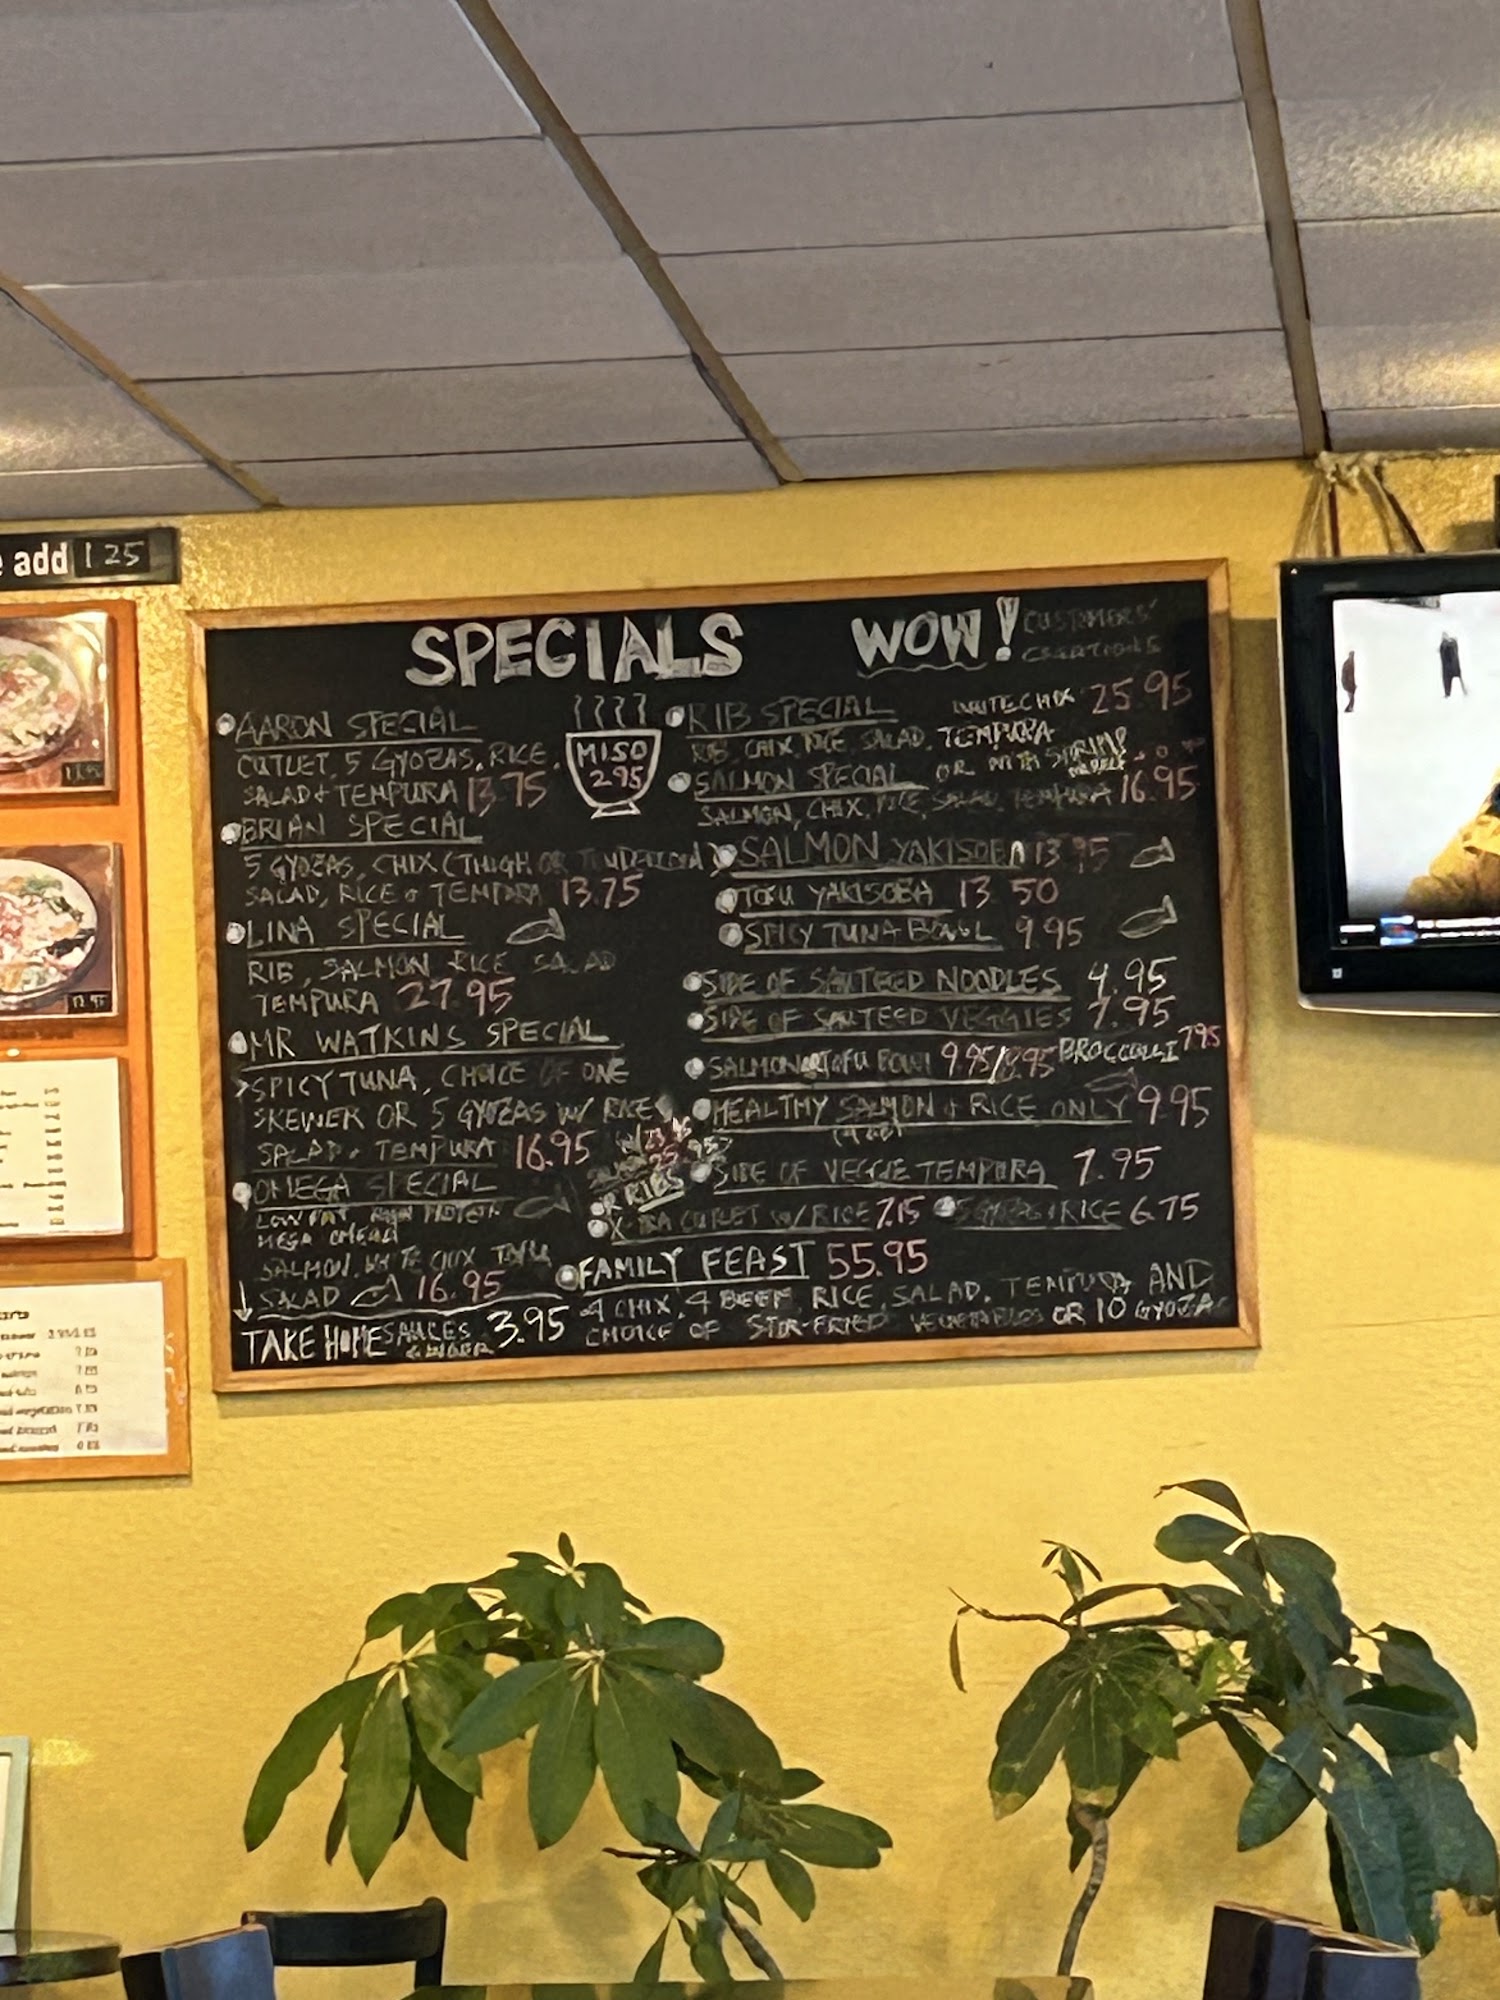 add 1 25
SPECIALS
WOW!
CUSTOMERS'
CREATIONS
AARON SPECIAL
CUTLET, 5 GYOZAS, RICE,
SALAD + TEMPURA 13.75
MISO
2.95
BRIAN SPECIAL
5 GYOZAS, CHIX (THIGH OR TENDERLOIN)
SALAD, RICE + TEMPURA 13.75
LINA SPECIAL
RIB, SALMON, RICE SALAD
TEMPURA 27.95
MR WATKINS SPECIAL
SPICY TUNA, CHOICE OF ONE
SKEWER OR 5 GYOZAS W/ RICE
SALAD + TEMPURA 16.95
OMEGA SPECIAL
LOW FAT HIGH PROTEIN
MEGA OMEGA
SALMON, WHITE CHIX TOFU
SALAD 16.95
TAKE HOME SAUCES 3.95
GINGER
RIB SPECIAL WHITE CHIX 25.95
RIB, CHIX, RICE, SALAD, TEMPURA
OR WITH SHRIMP
SALMON SPECIAL 16.95
SALMON, CHIX, RICE, SALAD, TEMPURA
SALMON YAKISOBA 13.95
TOFU YAKISOBA 13 50
SPICY TUNA BOWL 9.95
SIDE OF SAUTEED NOODLES 4.95
SIDE OF SAUTEED VEGGIES 7.95
BROCCOLLI 7.95
SALMON TOFU BOWL 9.95/8.95
HEALTHY SALMON + RICE ONLY 9.95
OR RIBS
SIDE OF VEGGIE TEMPURA 7.95
X-TRA CUTLET W/ RICE 7.15
5 GYOZA + RICE 6.75
FAMILY FEAST 55.95
4 CHIX, 4 BEEF, RICE, SALAD, TEMPURA AND
CHOICE OF STIR-FRIED VEGETABLES OR 10 GYOZA